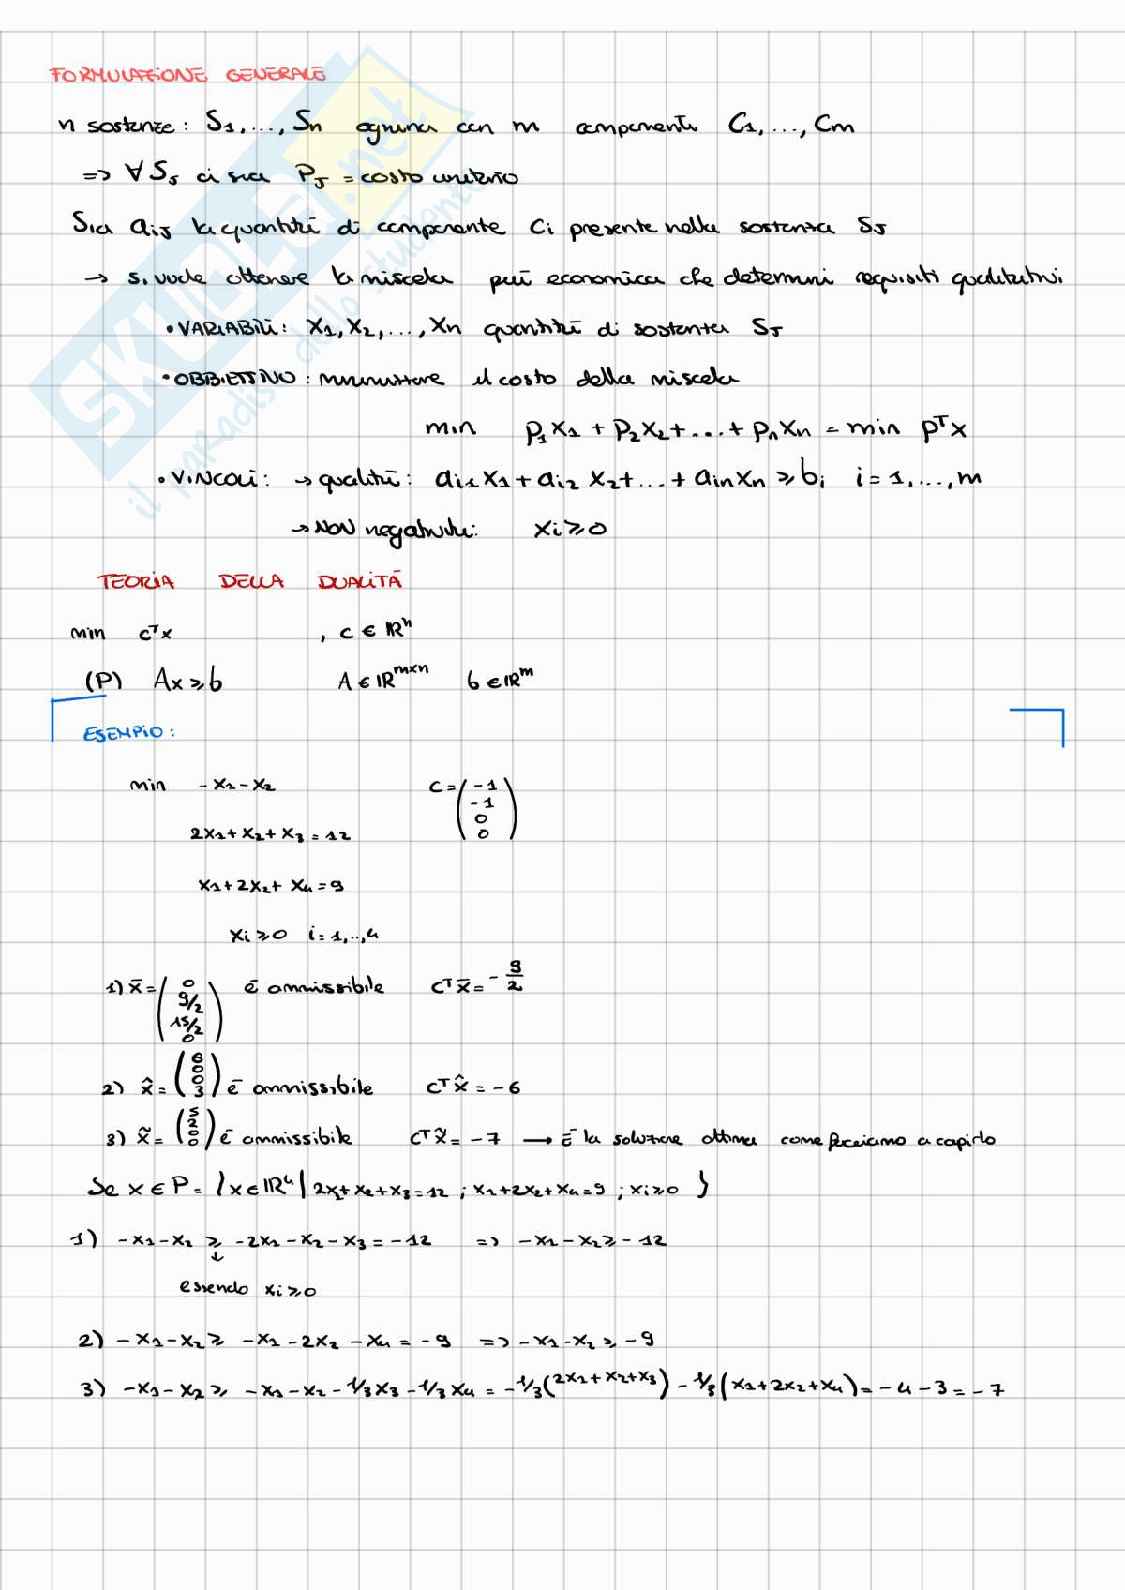 FORMULAZIONE GENERALE
n sostanze: S1,..., Sn ognuna con m componenti C1,..., Cm
=> ∀ SJ ci sia PJ = costo unitario
Sia aiJ la quantità di componente Ci presente nella sostanza SJ
→ si vuole ottenere la miscela più economica che determini requisiti qualitativi
• VARIABILI: X1, X2, ..., Xn quantità di sostanza SJ
• OBBIETTIVO: minimizzare il costo della miscela
min p1x1 + p2x2 + ... + pnxn = min pᵀx
• VINCOLI: → qualità: ai1x1 + ai2x2 + ... + ainxn ⩾ bi i = 1,...,m
→ NON negatività: xi ⩾ 0
TEORIA DELLA DUALITÀ
min cᵀx , c ∈ ℝⁿ
(P) Ax ⩾ b A ∈ ℝᵐˣⁿ b ∈ ℝᵐ
ESEMPIO:
min -x1 - x2 c = ( -1 -1 0 0 )
2x1 + x2 + x3 = 12
x1 + 2x2 + x4 = 9
xi ⩾ 0 i = 1,..,4
1) x̄ = ( 0 9/2 15/2 0 ) è ammissibile cᵀx̄ = - 9/2
2) x̂ = ( 6 0 0 3 ) è ammissibile cᵀx̂ = -6
3) x̃ = ( 5 2 0 0 ) è ammissibile cᵀx̃ = -7 → È la soluzione ottima come facciamo a capirlo
Se x ∈ P = { x ∈ ℝ⁴ | 2x1 + x2 + x3 = 12 ; x1 + 2x2 + x4 = 9 ; xi ⩾ 0 }
1) -x1 - x2 ⩾ -2x1 - x2 - x3 = -12 => -x1 - x2 ⩾ -12
↓
essendo xi ⩾ 0
2) -x1 - x2 ⩾ -x1 - 2x2 - x4 = -9 => -x1 - x2 ⩾ -9
3) -x1 - x2 ⩾ -x1 - x2 - 1/3x3 - 1/3x4 = -1/3(2x1 + x2 + x3) - 1/3(x1 + 2x2 + x4) = -4 - 3 = -7
SKUOLA.net
il paradiso dello studente